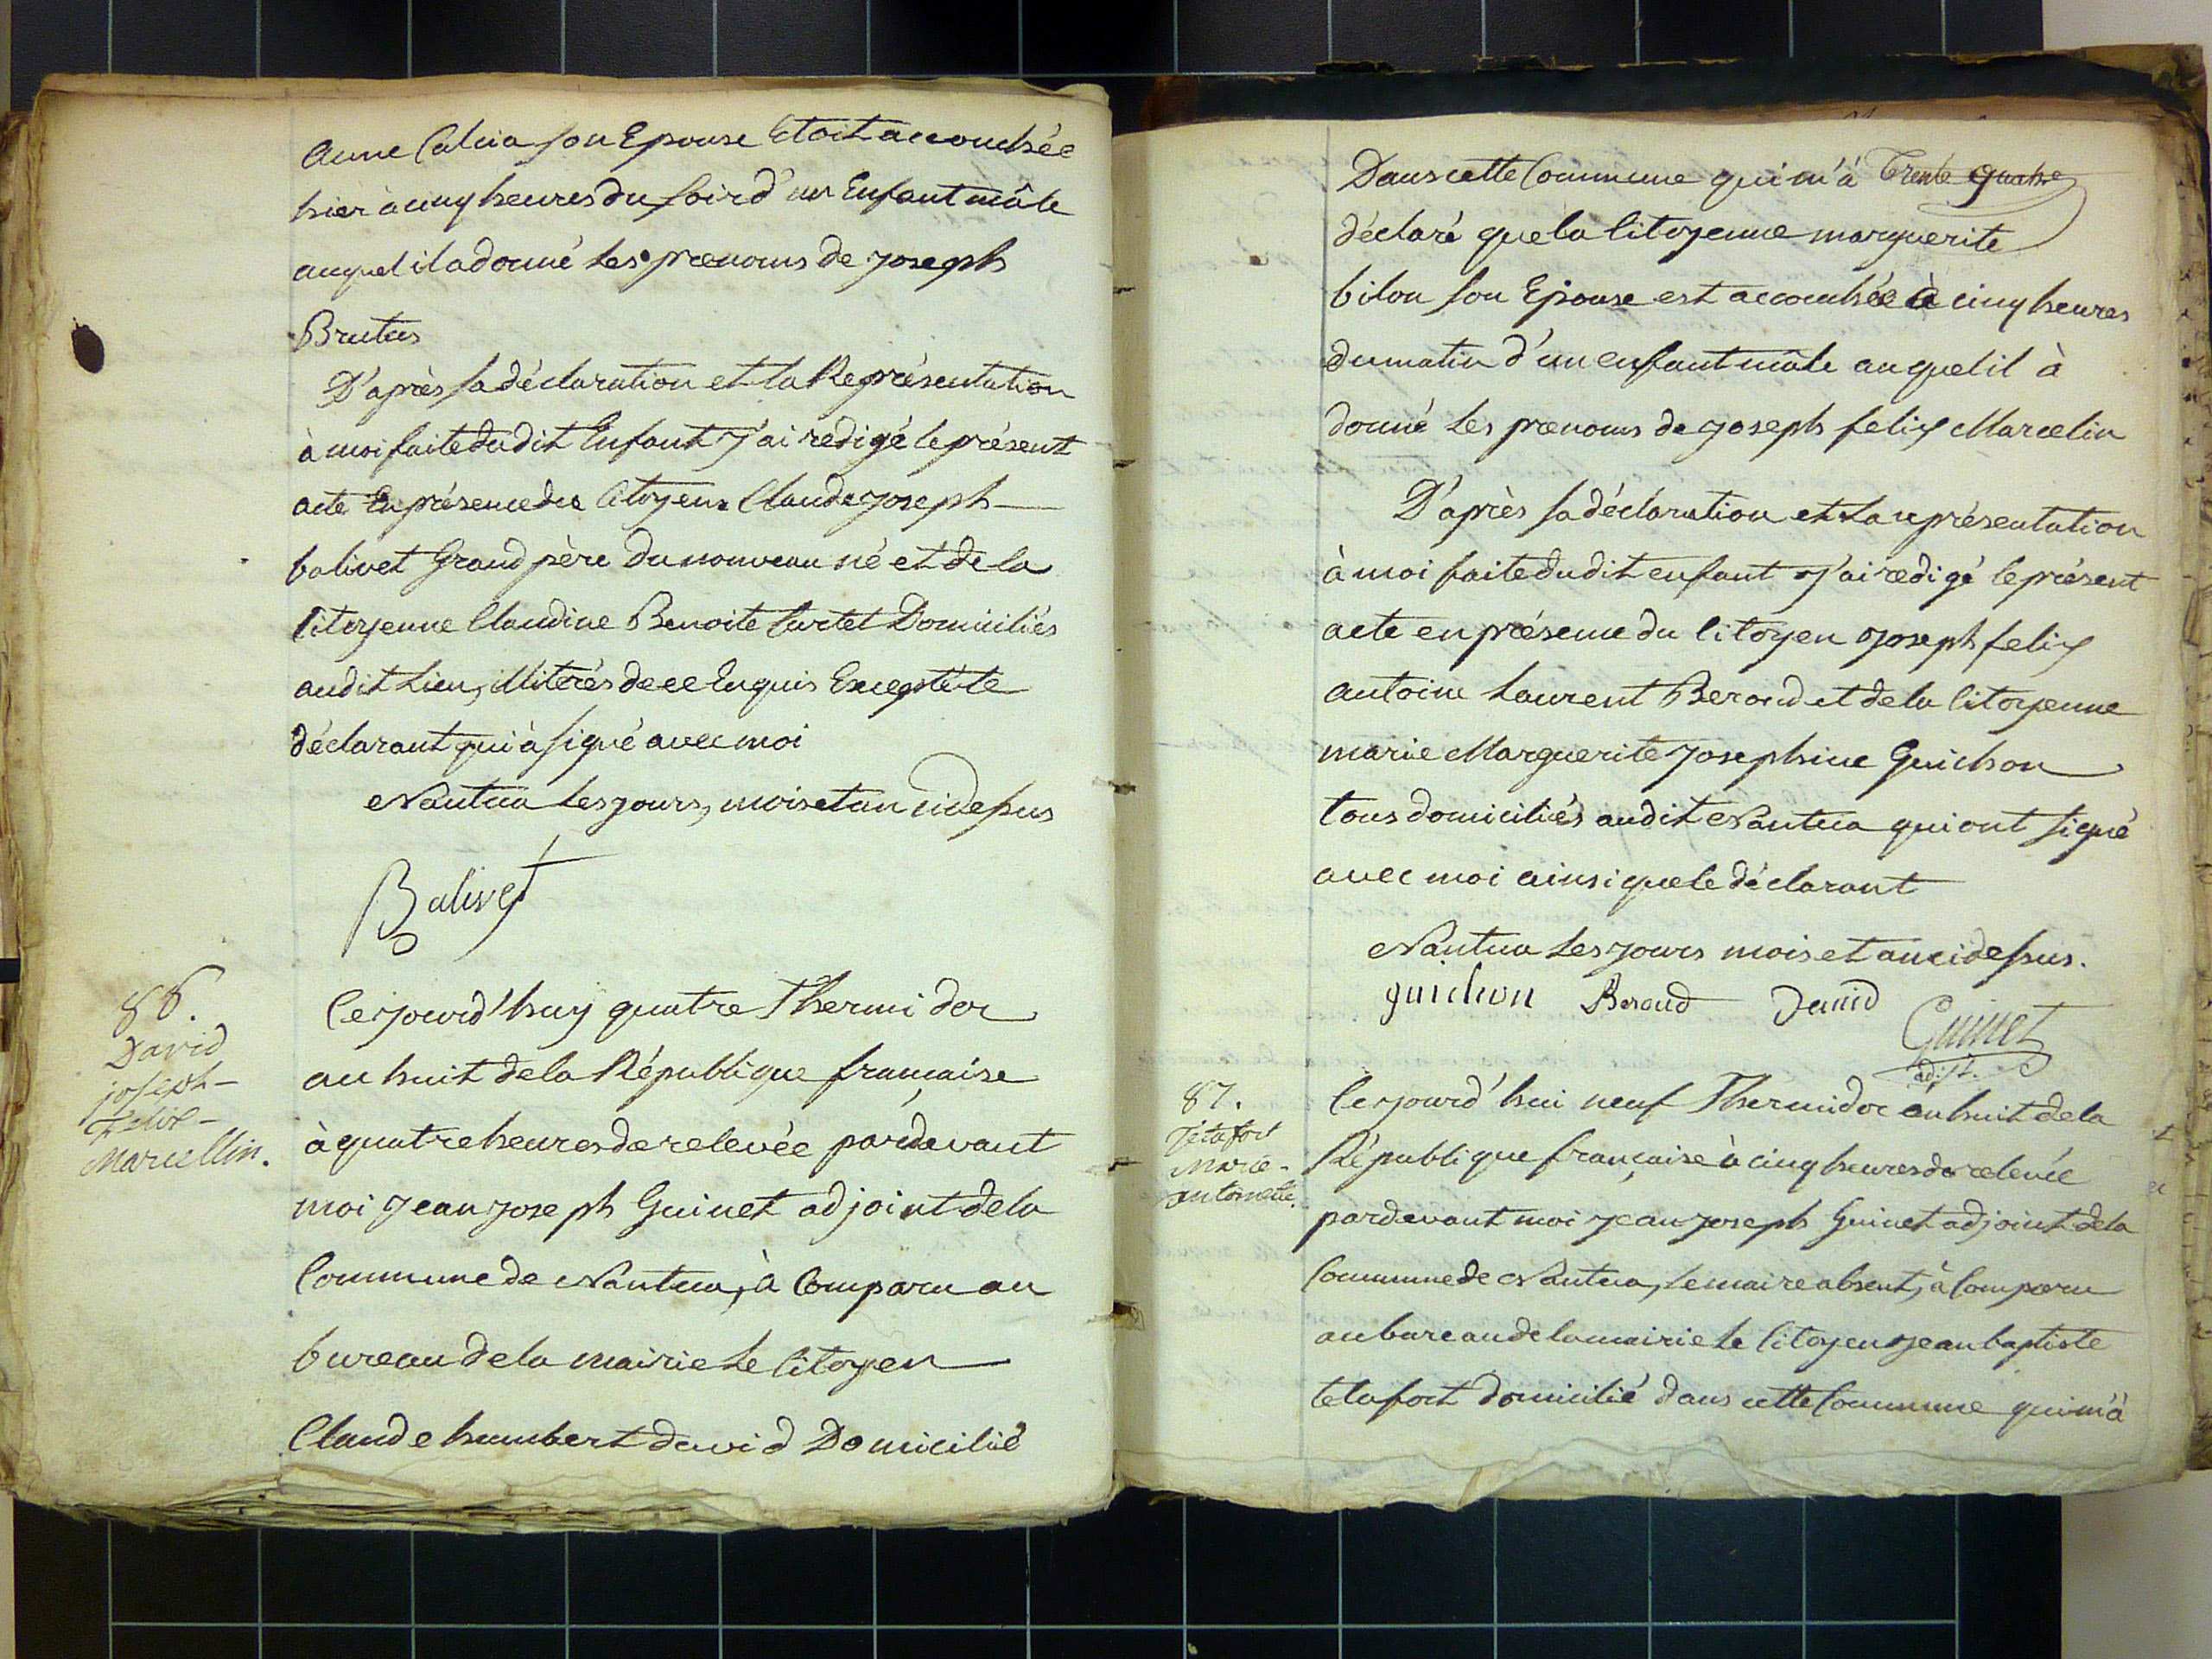 Anne Caluia son Epouse Etoit accouchée
hier à cinq heures du soir d'un Enfant mâle
auquel il a donné les prenoms de joseph
Brutus
D'après sa déclaration et la Représentation
à moi faite dudit Enfant j'ai redigé le présent
acte En présence du Citoyen Claude joseph
balivet Grand père du nouveau né et de la
Citoyenne Claudine Benoite Curtet Domiciliés
audit Lieu, illiterés de ce Enquis Excepté le
déclarant qui à signé avec moi
Nantua les jours, mois et an cidessus
Balivet
86.
David
joseph-
Felix-
Marcellin.
Cejourd'huy quatre Thermidor
an huit dela République française
à quatre heures de relevée pardevant
moi jean joseph Guinet adjoint dela
Commune de Nantua, à Comparu au
bureau dela mairie Le Citoyen
Claude humbert david Domicilié
Trente quatre
Dans cette Commune qui m'à
déclaré que la Citoyenne marguerite
bilon son Epouse est accouchée à cinq heures
du matin d'un enfant mâle auquel il à
donné les prenoms de joseph felix Marcelin
D'après sa déclaration et la représentation
à moi faite dudit enfant j'ai redigé le présent
acte en présence du Citoyen joseph felix
antoine Laurent Beroud et de la Citoyenne
marie Marguerite josephine Guichon
tous domiciliés audit Nantua qui ont signé
avec moi ainsi que le déclarant
Nantua les jours mois et an cidessus.
guichon Beroud David Guinet
adjt.
87.
Tétafort
Marie-
antoinette.
Cejourd'hui neuf Thermidor an huit de la
République française à cinq heures de relevée
pardevant moi jean joseph Guinet adjoint de la
Commune de Nantua, le maire absent, à Comparu
au bureau de la mairie Le Citoyen jean baptiste
tetafort domicilié dans cette Commune qui m'à